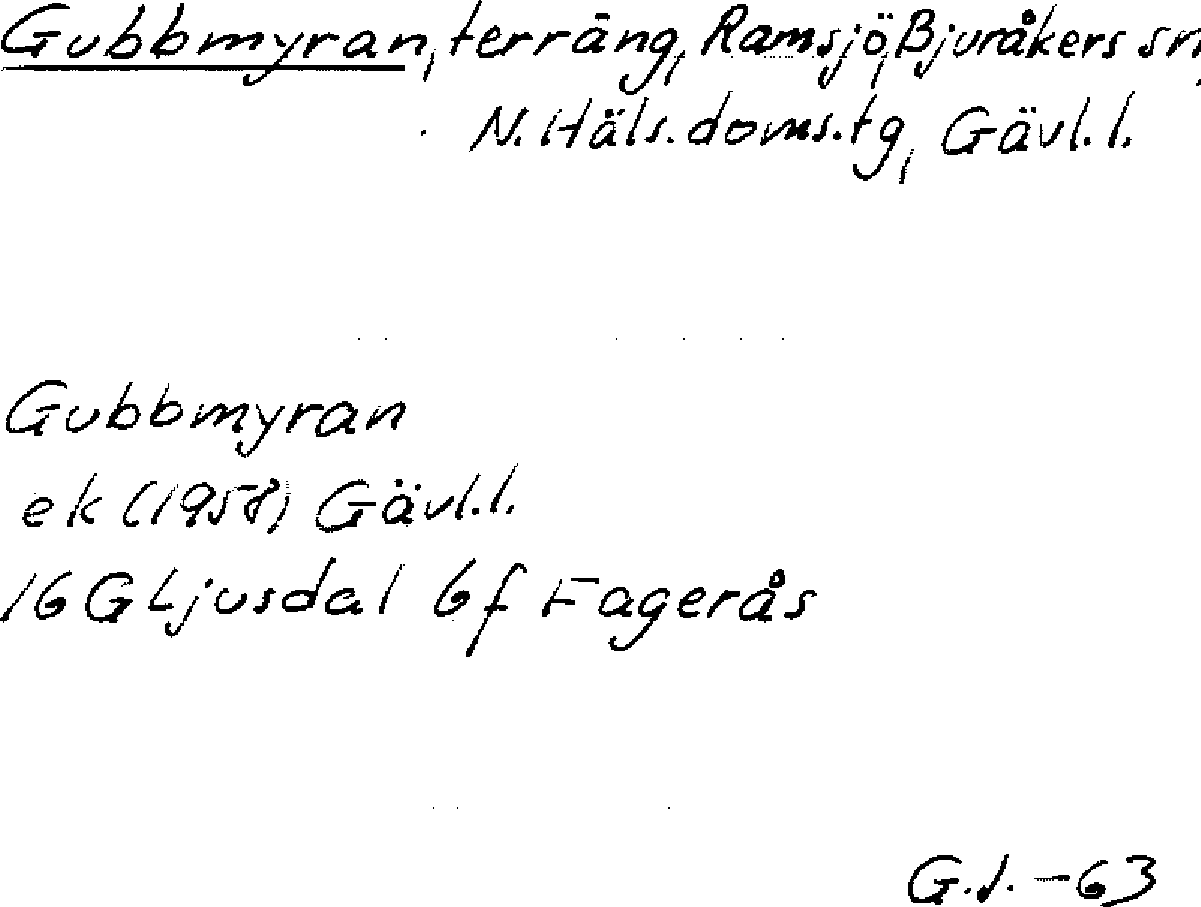 Gubbmyran, terräng, Ramsjö, Bjuråkers sn,
N. Häls. doms. tg, Gävl. l.
Gubbmyran
ek (1958) Gävl. l.
16 G Ljusdal 6 f Fagerås
G.J. -63